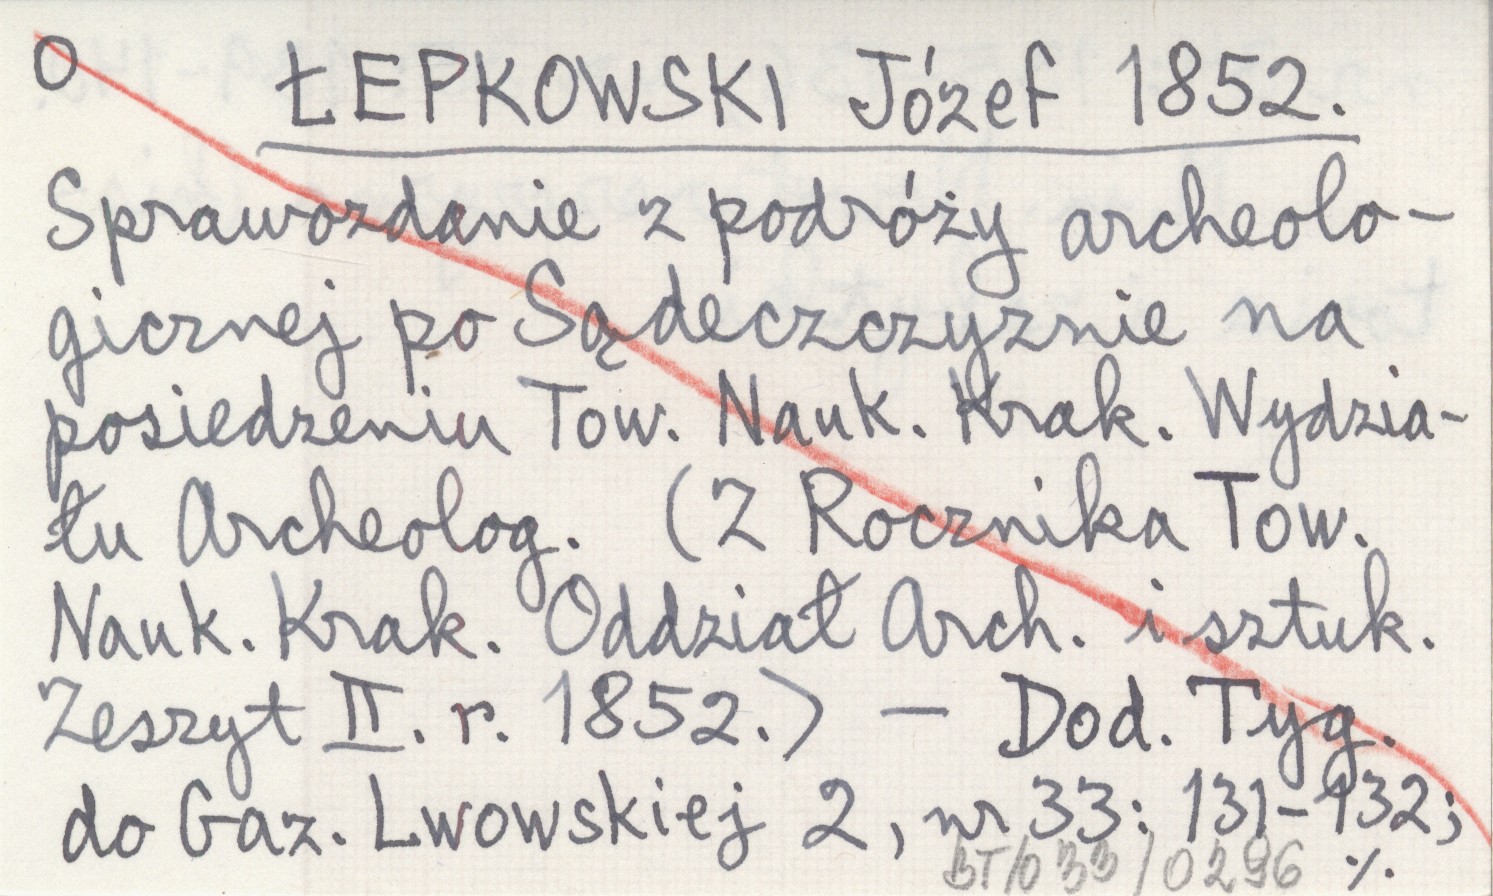 O ŁEPKOWSKI Józef 1852.
Sprawozdanie z podróży archeolo-
gicznej po Sądeczczyznie na
posiedzeniu Tow. Nauk. Krak. Wydzia-
łu Archeolog. (Z Rocznika Tow.
Nauk. Krak. Oddział Arch. i sztuk.
Zeszyt II. r. 1852.) — Dod. Tyg.
do Gaz. Lwowskiej 2, nr 33: 131-132;
BT/033/0296 ./.